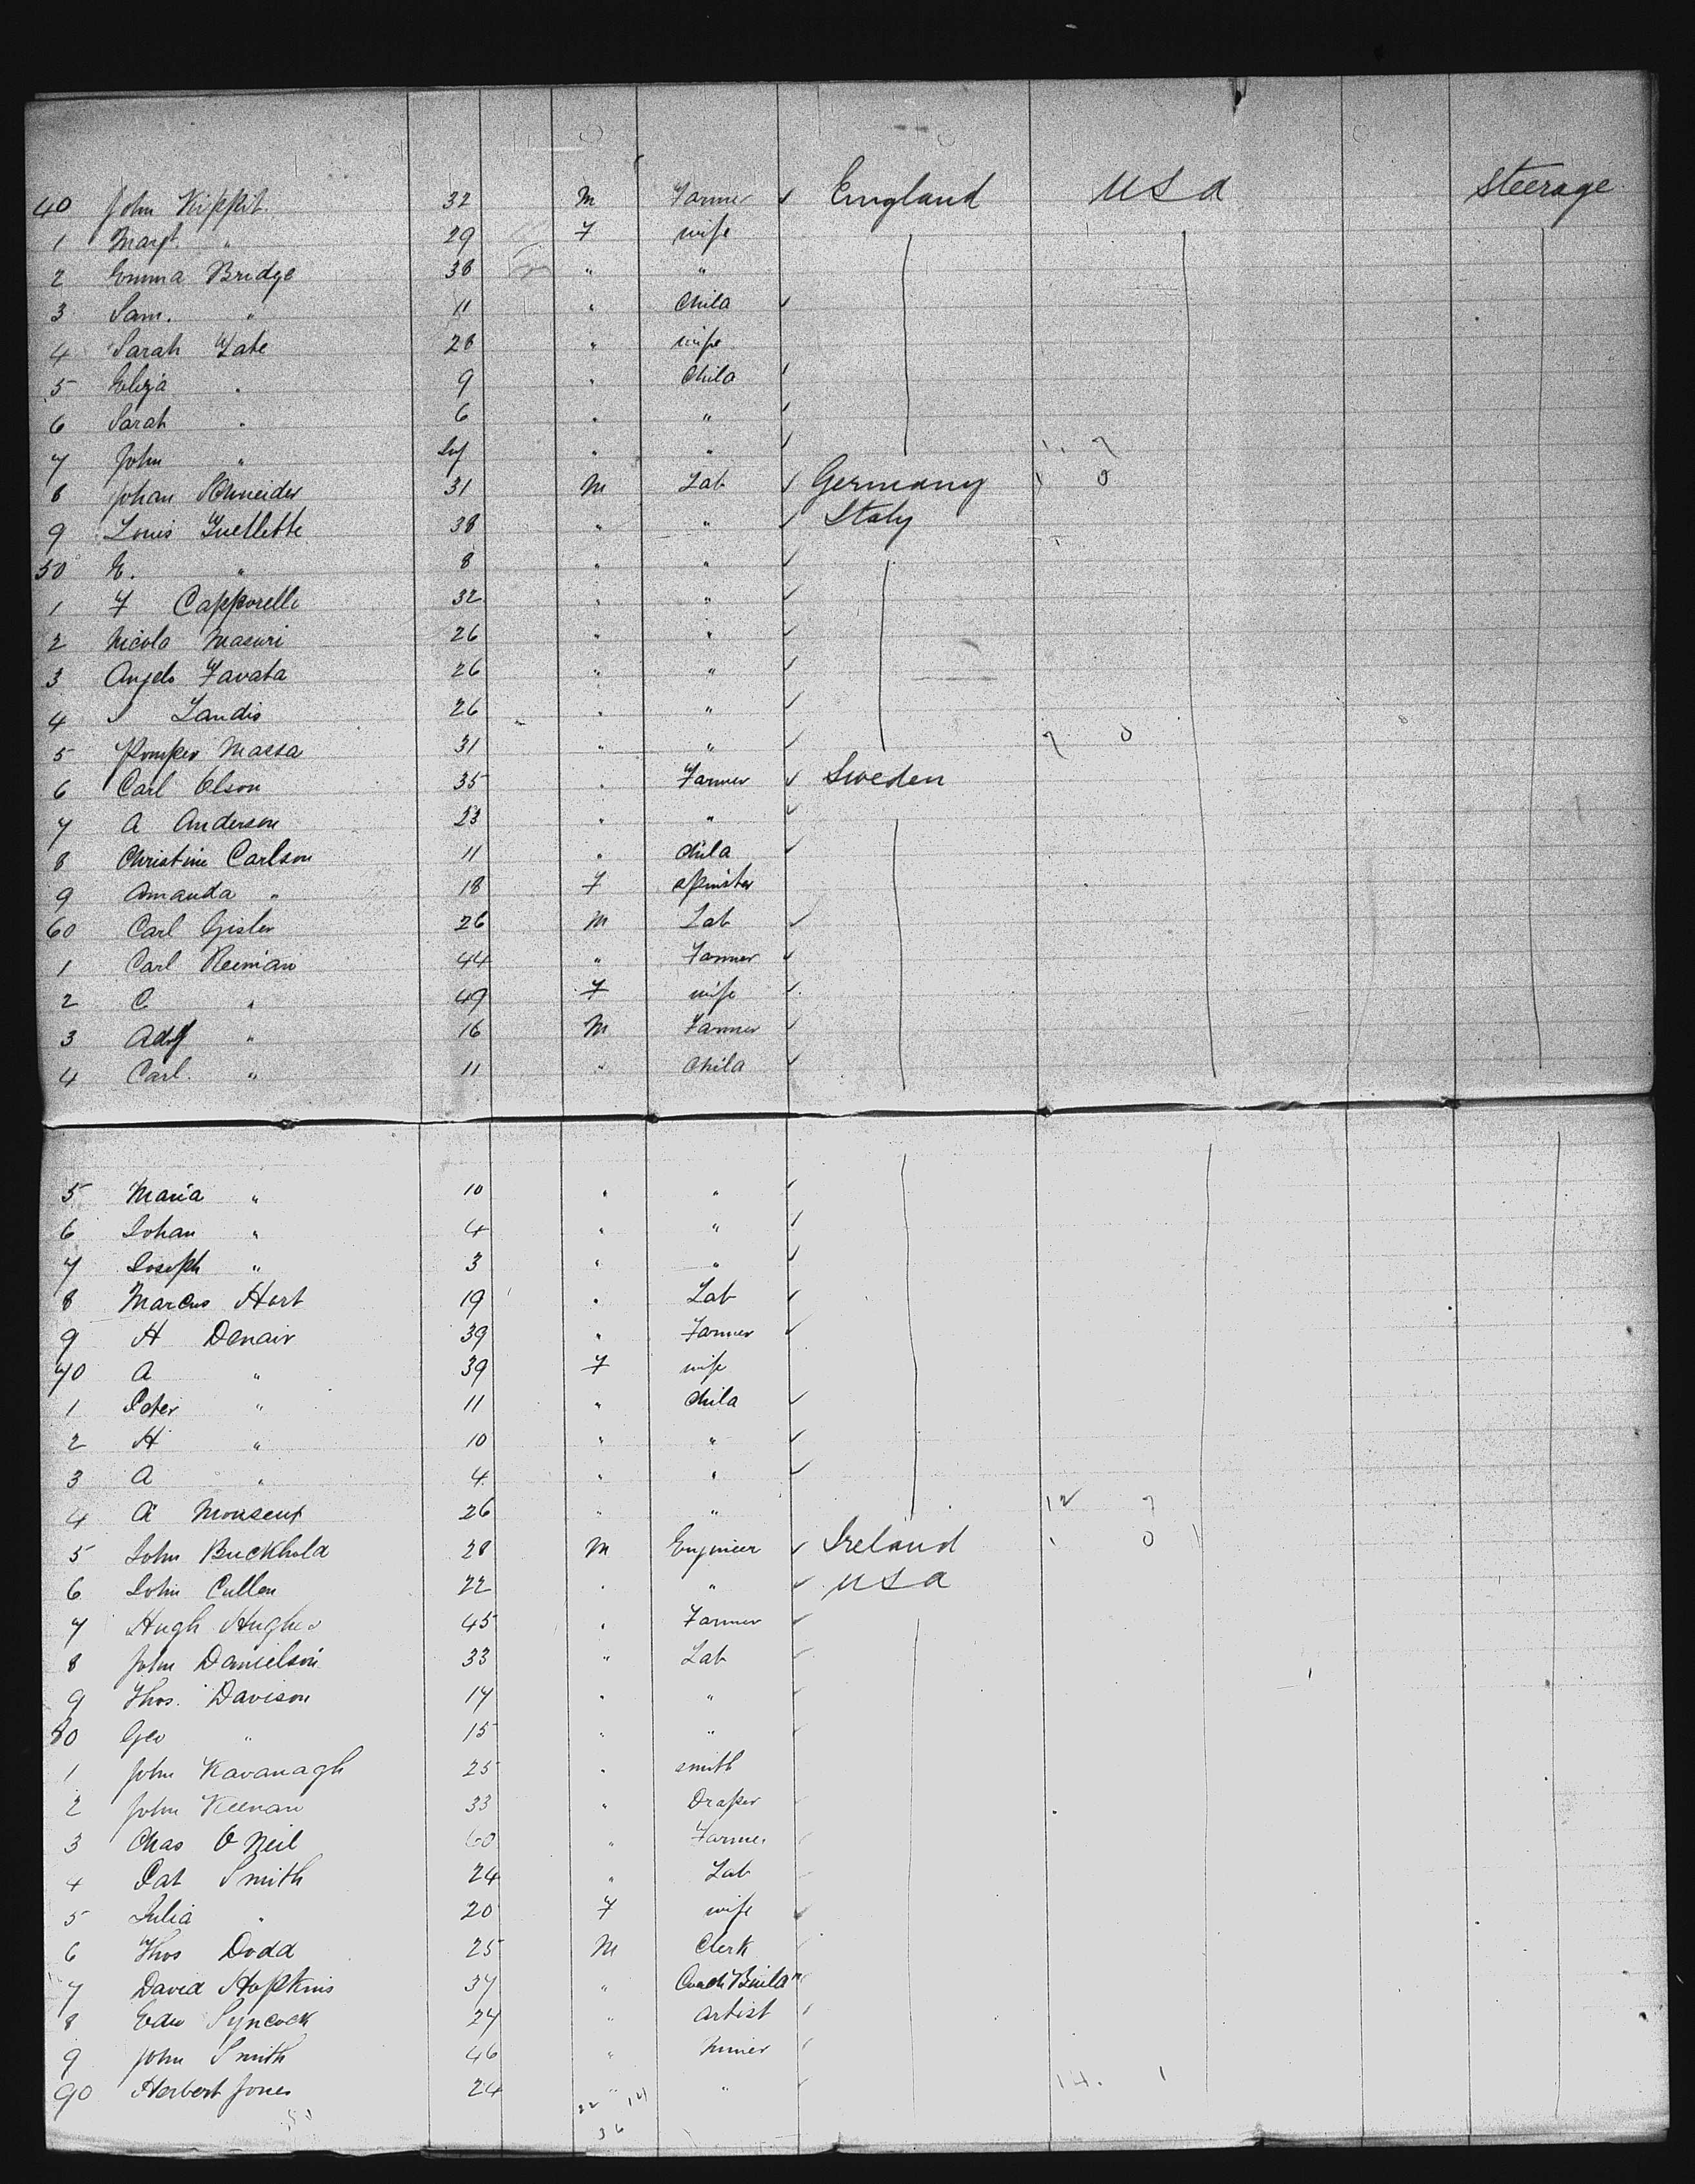 40 John Kippit. 32 M Farmer ✓ England USA Steerage
1 Margt. " 29 F wife
2 Emma Bridge 38 " "
3 Sam. " 11 " Child ✓
4 Sarah Yate 28 " wife
5 Eliza " 9 " Child ✓
6 Sarah " 6 " " ✓
7 John " Inf " " ✓
8 Johan Schneider 31 M Lab ✓ Germany
9 Louis 38 " " ✓ Italy
50 E. " 8 " " ✓
1 F Capporelli 32 " " ✓
2 Nicola Masuri 26 " " ✓
3 Angelo Favata 26 " " ✓
4 Landis 26 " " ✓
5 Pompeo Massa 31 " " ✓
6 Carl Olson 35 " Farmer ✓ Sweden
7 A Anderson 23 " " ✓
8 Christine Carlson 11 " Child ✓
9 Amanda " 18 F Spinster
60 Carl Gisler 26 M Lab ✓
1 Carl Reiman 44 " Farmer ✓
2 C " 49 F wife ✓
3 Adolf " 16 M Farmer ✓
4 Carl. " 11 " Child ✓
5 Maria " 10 " " ✓
6 Johan " 4 " " ✓
7 Joseph " 3 " " ✓
8 Marcus Hart 19 " Lab ✓
9 H Denair 39 " Farmer ✓
70 A " 39 F wife
1 Peter " 11 " Child ✓
2 H " 10 " " ✓
3 A " 4 " " ✓
4 A 26 " "
5 John Buckhold 28 M Engineer ✓ Ireland
6 John Cullen 22 " " ✓ USA
7 Hugh Hughes 45 " Farmer ✓
8 John Danielson 33 " Lab ✓
9 Thos. Davison 17 " " ✓
80 Geo " 15 " " ✓
1 John Kavanagh 25 " Smith
2 John Keenan 33 " Draper
3 Chas O Neil 60 " Farmer
4 Pat Smith 24 " Lab
5 Julia " 20 F wife ✓
6 Thos Dodd 25 M Clerk
7 David Hopkins 37 " Coach Build^r
8 Edw Syncock 27 " Artist
9 John Smith 46 " Miner
90 Herbert Jones 24 " "